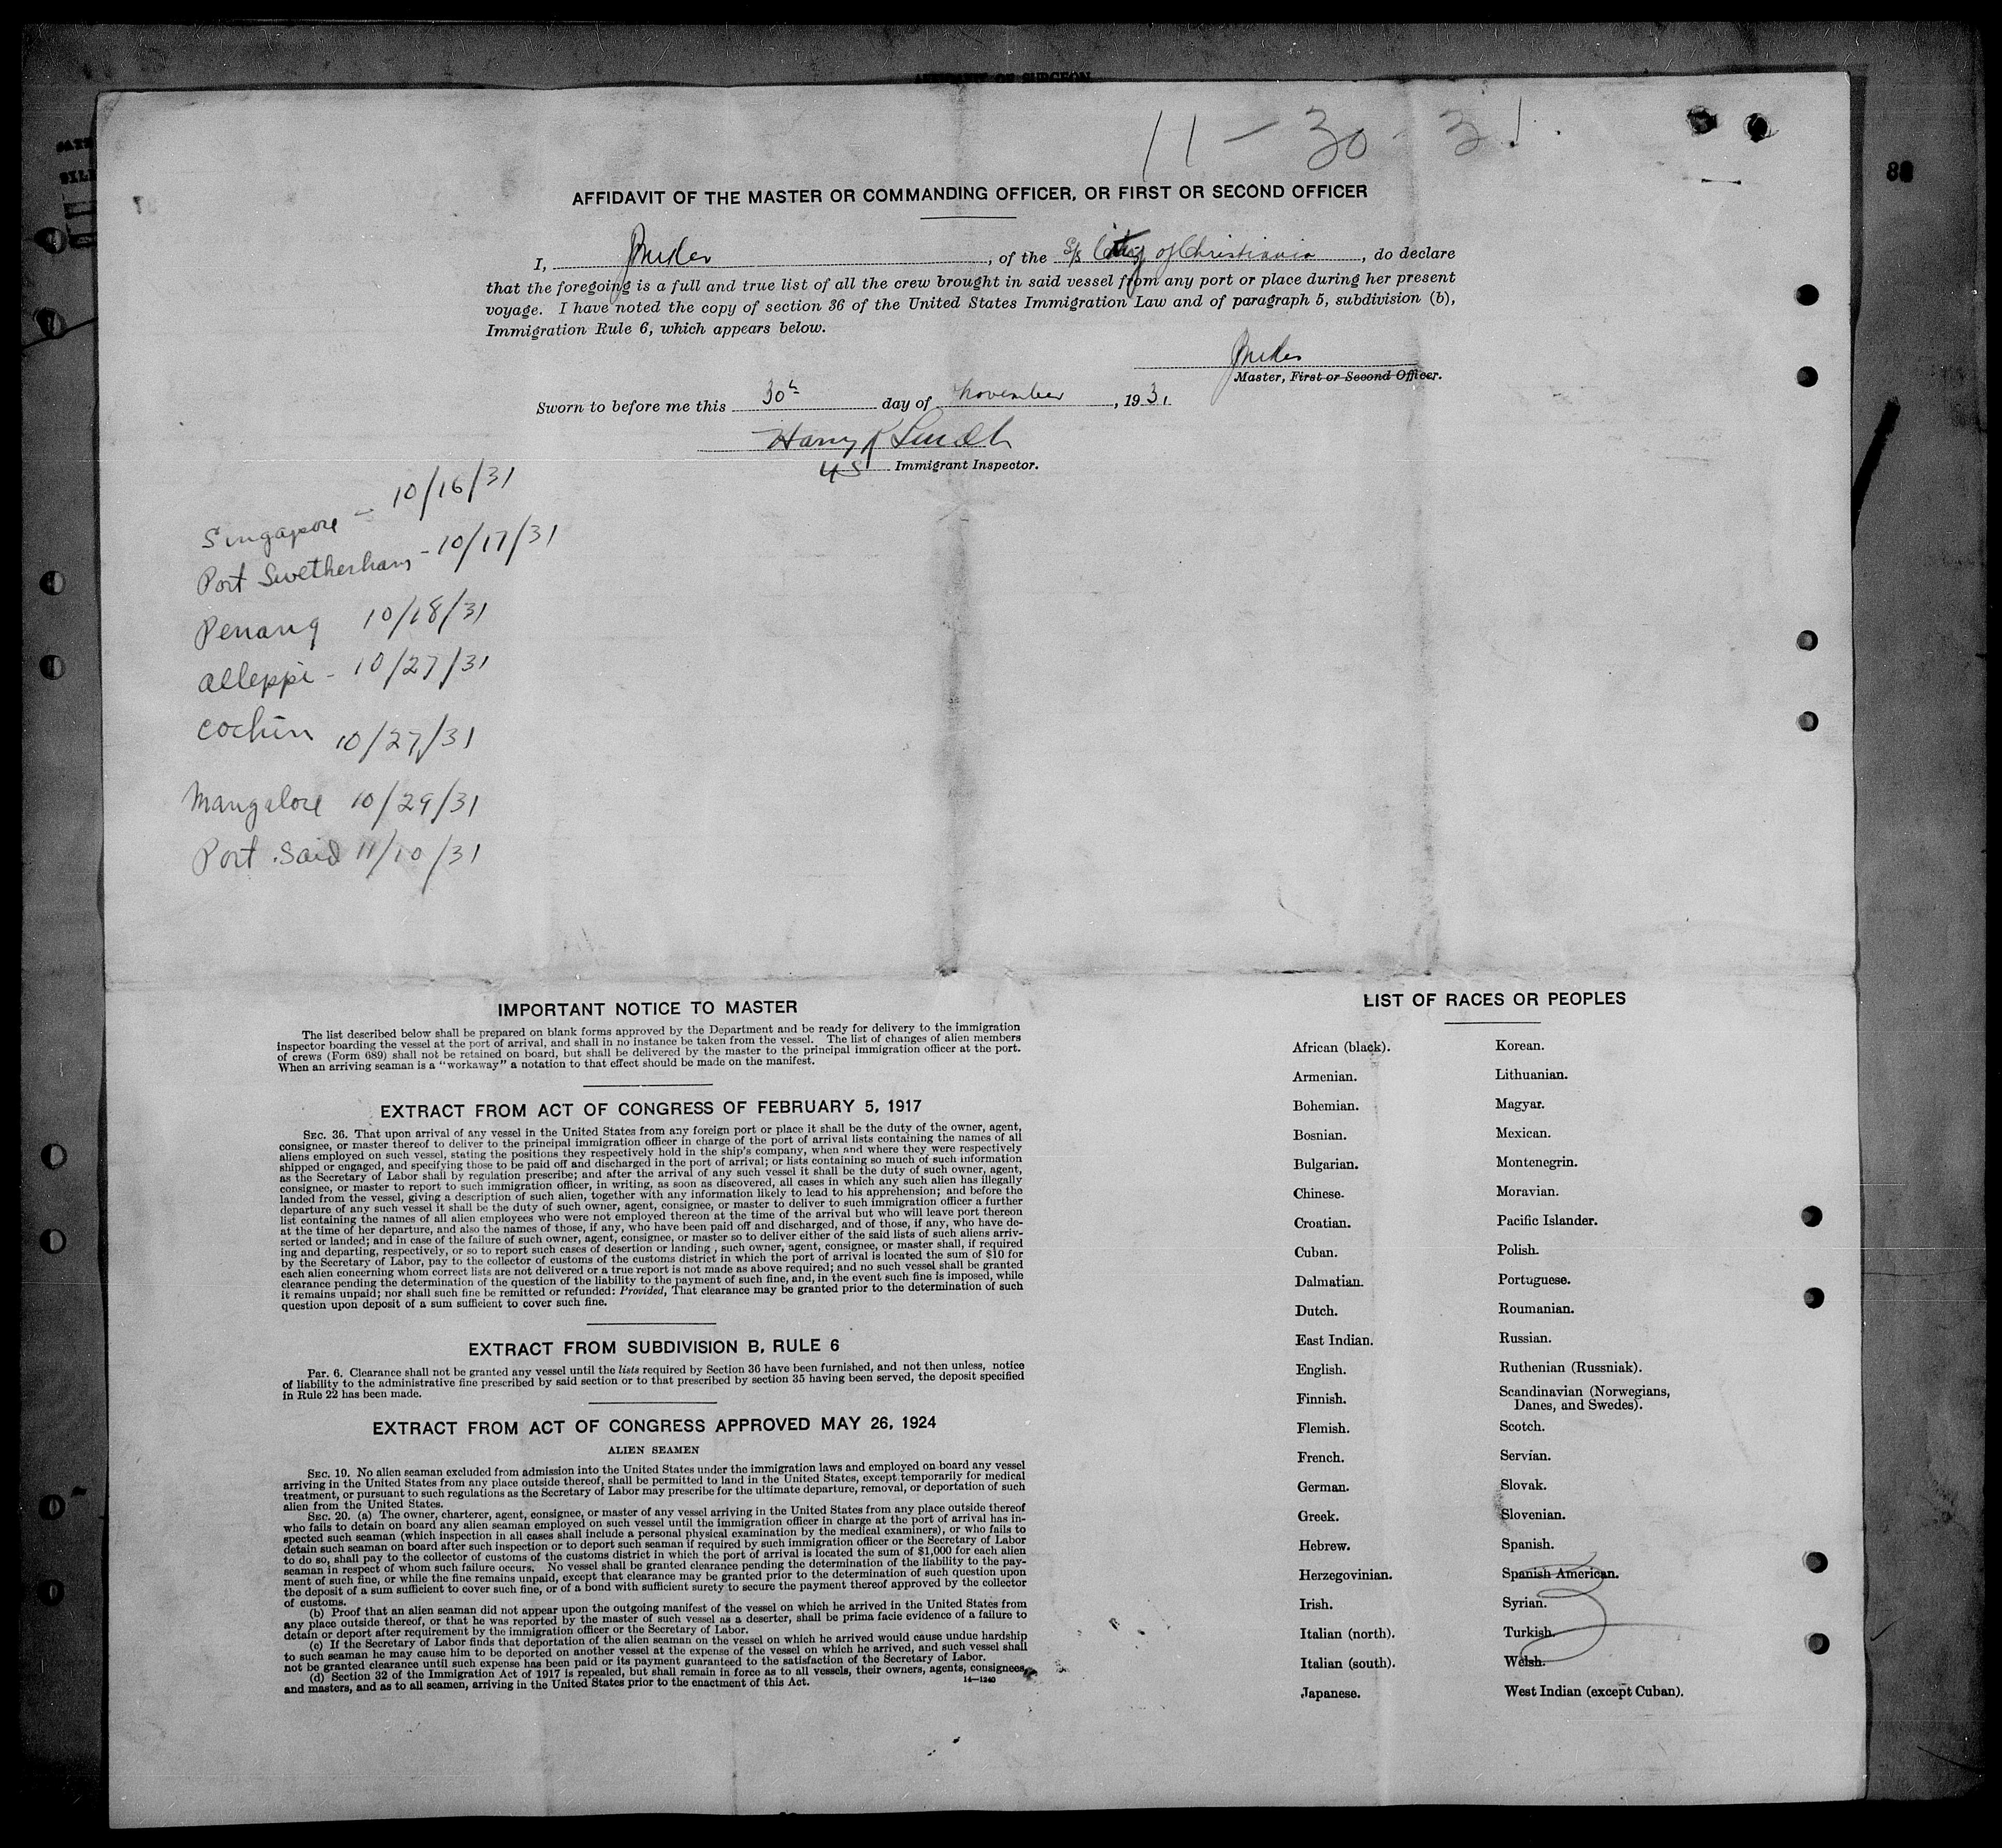 AFFIDAVIT OF SURGEON
11-30-31.
AFFIDAVIT OF THE MASTER OR COMMANDING OFFICER, OR FIRST OR SECOND OFFICER
I, , of the S/S City of Christiania, do declare
that the foregoing is a full and true list of all the crew brought in said vessel from any port or place during her present
voyage. I have noted the copy of section 36 of the United States Immigration Law and of paragraph 5, subdivision (b),
Immigration Rule 6, which appears below.
Master, First or Second Officer.
Sworn to before me this 30th day of November, 1931
Harry R Smith
US Immigrant Inspector.
Singapore - 10/16/31
Port Swetherham - 10/17/31
Penang 10/18/31
Alleppi - 10/27/31
Cochin 10/27/31
Mangalore 10/29/31
Port Said 11/10/31
IMPORTANT NOTICE TO MASTER
The list described below shall be prepared on blank forms approved by the Department and be ready for delivery to the immigration
inspector boarding the vessel at the port of arrival, and shall in no instance be taken from the vessel. The list of changes of alien members
of crews (Form 689) shall not be retained on board, but shall be delivered by the master to the principal immigration officer at the port.
When an arriving seaman is a "workaway" a notation to that effect should be made on the manifest.
EXTRACT FROM ACT OF CONGRESS OF FEBRUARY 5, 1917
SEC. 36. That upon arrival of any vessel in the United States from any foreign port or place it shall be the duty of the owner, agent,
consignee, or master thereof to deliver to the principal immigration officer in charge of the port of arrival lists containing the names of all
aliens employed on such vessel, stating the positions they respectively hold in the ship's company, when and where they were respectively
shipped or engaged, and specifying those to be paid off and discharged in the port of arrival; or lists containing so much of such information
as the Secretary of Labor shall by regulation prescribe; and after the arrival of any such vessel it shall be the duty of such owner, agent,
consignee, or master to report to such immigration officer, in writing, as soon as discovered, all cases in which any such alien has illegally
landed from the vessel, giving a description of such alien, together with any information likely to lead to his apprehension; and before the
departure of any such vessel it shall be the duty of such owner, agent, consignee, or master to deliver to such immigration officer a further
list containing the names of all alien employees who were not employed thereon at the time of the arrival but who will leave port thereon
at the time of her departure, and also the names of those, if any, who have been paid off and discharged, and of those, if any, who have de-
serted or landed; and in case of the failure of such owner, agent, consignee, or master so to deliver either of the said lists of such aliens arriv-
ing and departing, respectively, or so to report such cases of desertion or landing, such owner, agent, consignee, or master shall, if required
by the Secretary of Labor, pay to the collector of customs of the customs district in which the port of arrival is located the sum of $10 for
each alien concerning whom correct lists are not delivered or a true report is not made as above required; and no such vessel shall be granted
clearance pending the determination of the question of the liability to the payment of such fine, and, in the event such fine is imposed, while
it remains unpaid; nor shall such fine be remitted or refunded: Provided, That clearance may be granted prior to the determination of such
question upon deposit of a sum sufficient to cover such fine.
EXTRACT FROM SUBDIVISION B, RULE 6
PAR. 6. Clearance shall not be granted any vessel until the lists required by Section 36 have been furnished, and not then unless, notice
of liability to the administrative fine prescribed by said section or to that prescribed by section 35 having been served, the deposit specified
in Rule 22 has been made.
EXTRACT FROM ACT OF CONGRESS APPROVED MAY 26, 1924
ALIEN SEAMEN
SEC. 19. No alien seaman excluded from admission into the United States under the immigration laws and employed on board any vessel
arriving in the United States from any place outside thereof, shall be permitted to land in the United States, except temporarily for medical
treatment, or pursuant to such regulations as the Secretary of Labor may prescribe for the ultimate departure, removal, or deportation of such
alien from the United States.
SEC. 20. (a) The owner, charterer, agent, consignee, or master of any vessel arriving in the United States from any place outside thereof
who fails to detain on board any alien seaman employed on such vessel until the immigration officer in charge at the port of arrival has in-
spected such seaman (which inspection in all cases shall include a personal physical examination by the medical examiners), or who fails to
detain such seaman on board after such inspection or to deport such seaman if required by such immigration officer or the Secretary of Labor
to do so, shall pay to the collector of customs of the customs district in which the port of arrival is located the sum of $1,000 for each alien
seaman in respect of whom such failure occurs. No vessel shall be granted clearance pending the determination of the liability to the pay-
ment of such fine, or while the fine remains unpaid, except that clearance may be granted prior to the determination of such question upon
the deposit of a sum sufficient to cover such fine, or of a bond with sufficient surety to secure the payment thereof approved by the collector
of customs.
(b) Proof that an alien seaman did not appear upon the outgoing manifest of the vessel on which he arrived in the United States from
any place outside thereof, or that he was reported by the master of such vessel as a deserter, shall be prima facie evidence of a failure to
detain or deport after requirement by the immigration officer or the Secretary of Labor.
(c) If the Secretary of Labor finds that deportation of the alien seaman on the vessel on which he arrived would cause undue hardship
to such seaman he may cause him to be deported on another vessel at the expense of the vessel on which he arrived, and such vessel shall
not be granted clearance until such expense has been paid or its payment guaranteed to the satisfaction of the Secretary of Labor.
(d) Section 32 of the Immigration Act of 1917 is repealed, but shall remain in force as to all vessels, their owners, agents, consignees,
and masters, and as to all seamen, arriving in the United States prior to the enactment of this Act.
14—1240
LIST OF RACES OR PEOPLES
African (black).
Armenian.
Bohemian.
Bosnian.
Bulgarian.
Chinese.
Croatian.
Cuban.
Dalmatian.
Dutch.
East Indian.
English.
Finnish.
Flemish.
French.
German.
Greek.
Hebrew.
Herzegovinian.
Irish.
Italian (north).
Italian (south).
Japanese.
Korean.
Lithuanian.
Magyar.
Mexican.
Montenegrin.
Moravian.
Pacific Islander.
Polish.
Portuguese.
Roumanian.
Russian.
Ruthenian (Russniak).
Scandinavian (Norwegians,
Danes, and Swedes).
Scotch.
Servian.
Slovak.
Slovenian.
Spanish.
Spanish American.
Syrian.
Turkish.
Welsh.
West Indian (except Cuban).